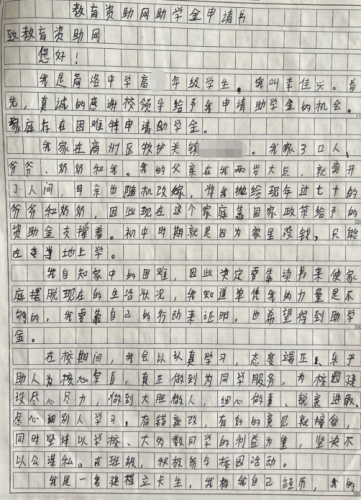 教育资助网助学金申请书
致教育资助网
您好！
我是商洛中学高 年级学生。我叫李佳兴。首
先，真诚的感谢校领导给予我申请助学金的机会。
家庭存在困难特申请助学金。
我家在商州区牧护关镇 。我家了口人，
爷爷、奶奶和我。我的父亲在我两岁大后，就离开
了人间，母亲也随机改嫁，将我抛给现年近七十的
爷爷和奶奶，因此现在这个家庭靠国家政策给予的
资助金支撑着。初中时期就是因为家里没钱，只能
在 地上学。
我自知家中的困难，因此决定要靠读书来使家
庭摆脱现在的生活状况，我知道单凭我的力量是不
够的，我要靠自己的行动来证明，也希望得到助学
金。
在校期间，我会以认真学习，态度端正、乐于
助人为核心 ，真正做到为同学服务，为校园建
设尽心尽力，做到大胆做人，细心做事、锐意进取，
虚心向别人学习。有错就改，有好的意见就接受，
同时坚持以学校、大多数同学的利益为重，坚决不
以公谋私。在班级，积极参与校园活动。
我是一名建档立卡生，我将我自己经历，我的